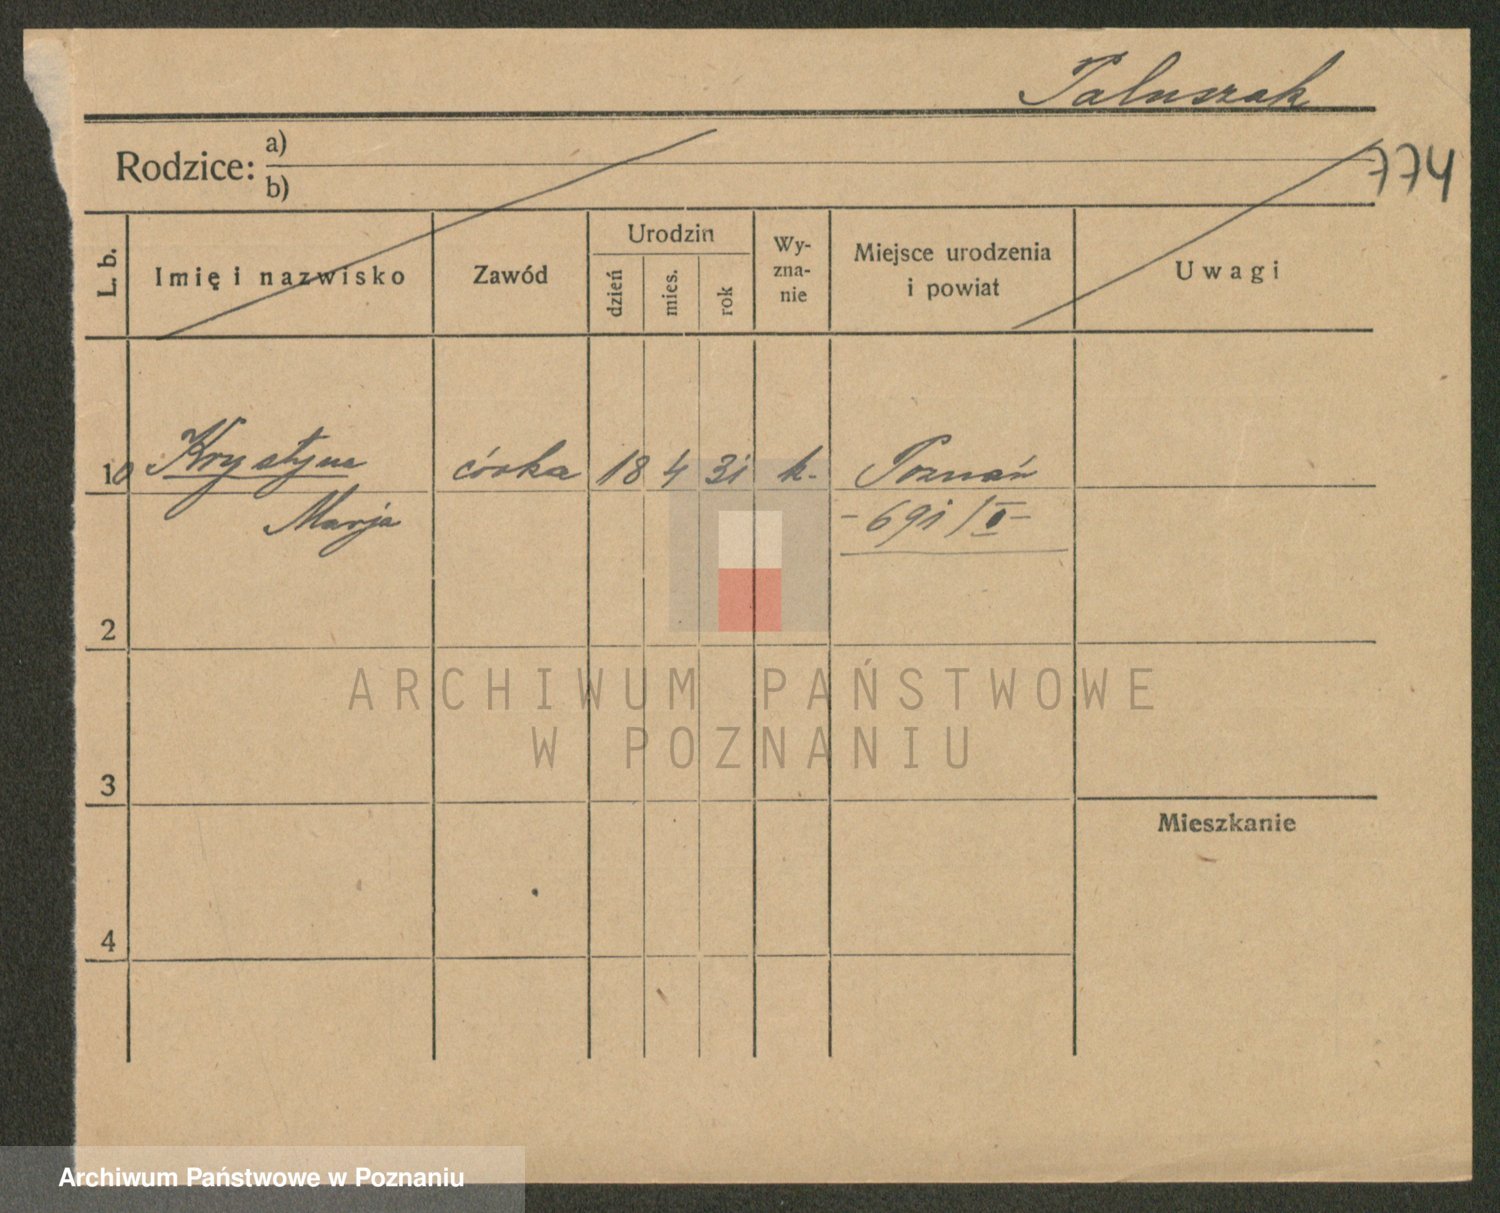 Paluszak
774
Rodzice: a)
b)
L. b.
Imię i nazwisko
Zawód
Urodzin
dzień
mies.
rok
Wy-
zna-
nie
Miejsce urodzenia
i powiat
Uwagi
10 Krystyna córka 18 4 31 k. Poznań
Marja - 691/II -
2
3
Mieszkanie
4
ARCHIWUM PAŃSTWOWE
W POZNANIU
Archiwum Państwowe w Poznaniu